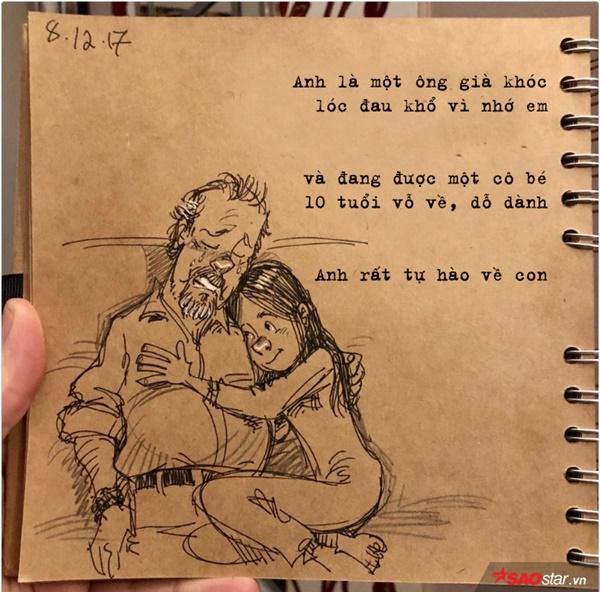 8.12.17
Anh là một ông già khóc
lóc đau khổ vì nhớ em
và đang được một cô bé
10 tuổi vỗ về, dỗ dành
Anh rất tự hào về con
SAOstar.vn